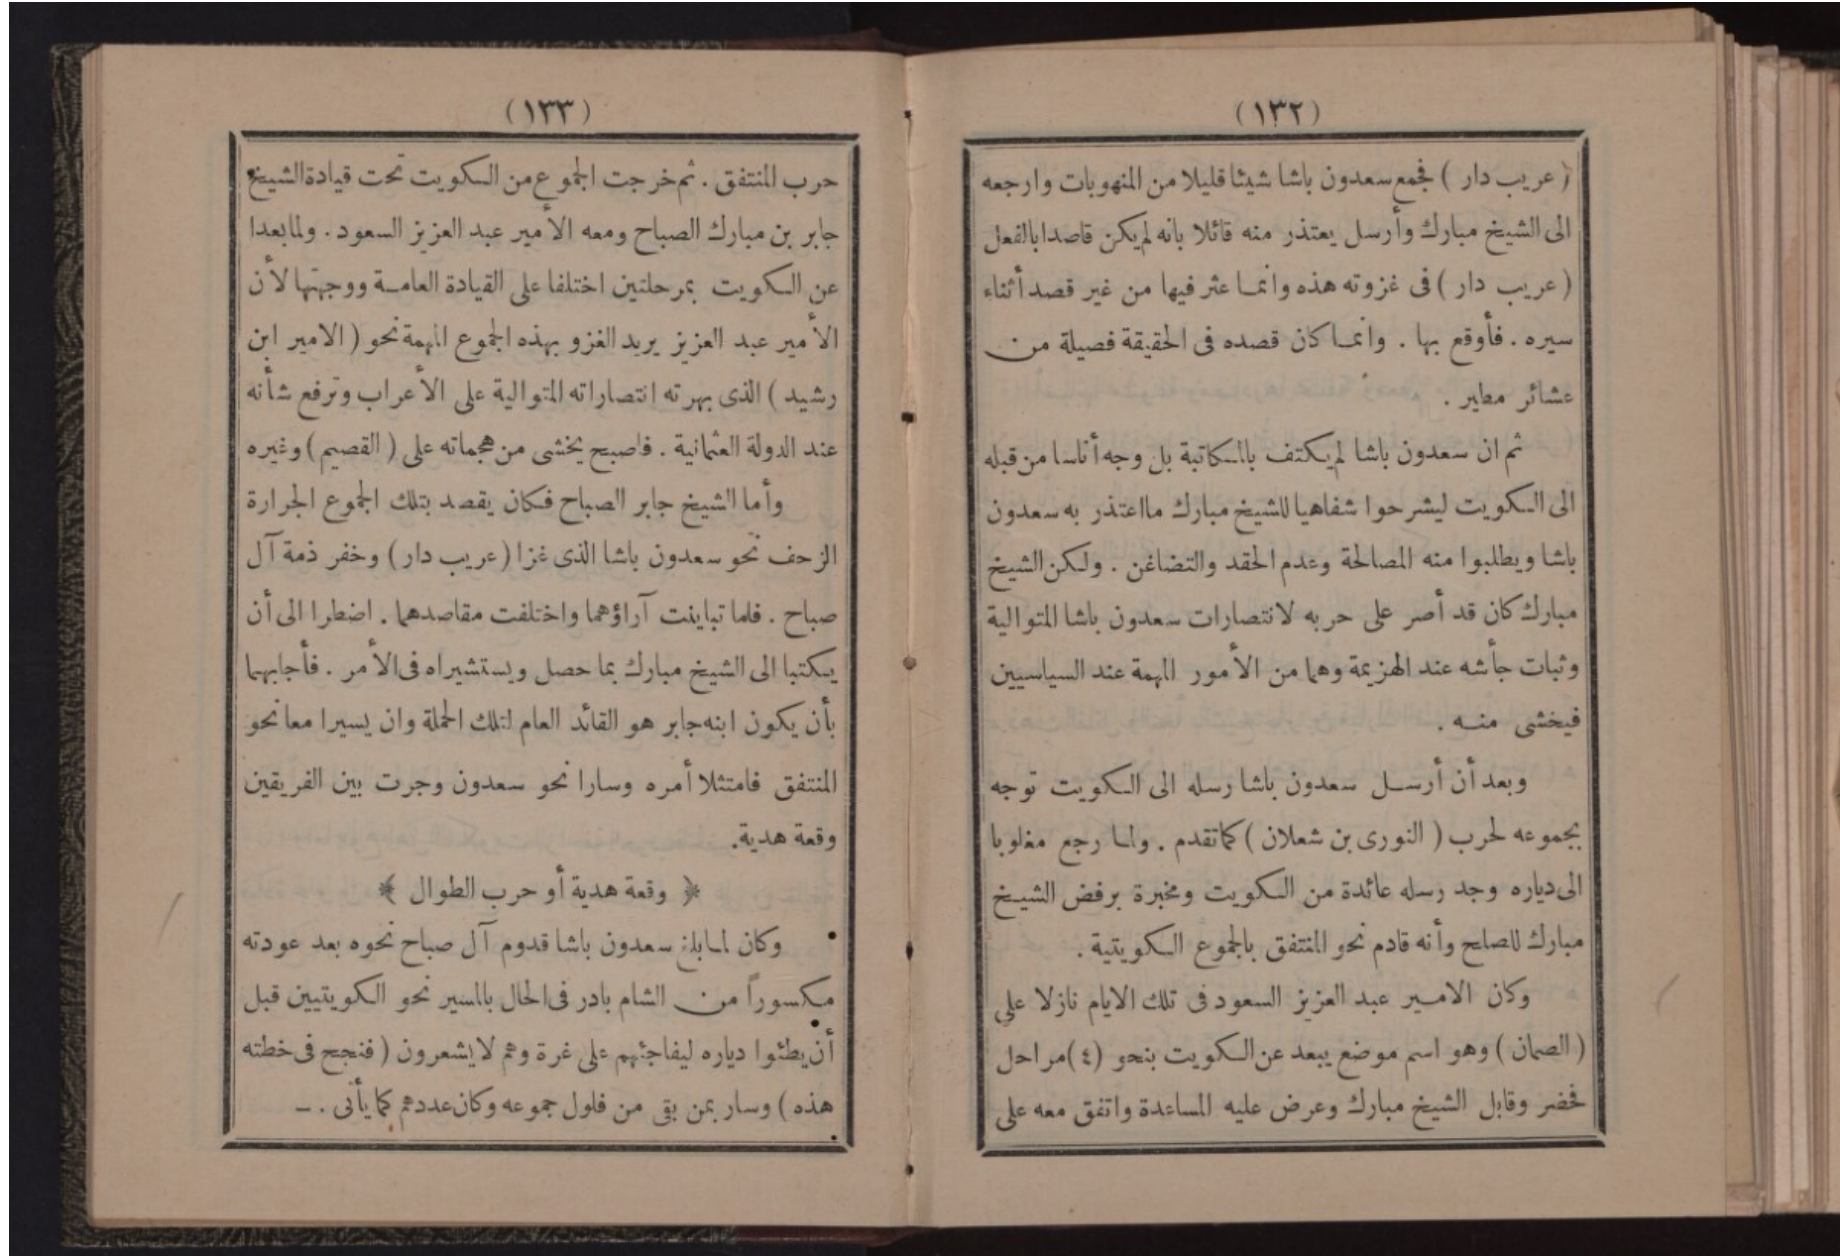 (١٣٢)
( عريب دار ) فجمع سعدون باشا شيئا قليلا من المنهوبات وارجعه
الى الشيخ مبارك وأرسل يعتذر منه قائلا بانه لم يكن قاصدا بالفعل
( عريب دار ) فى غزوته هذه وانما عثر فيها من غير قصد أثناء
سيره . فأوقع بها . وانما كان قصده فى الحقيقة فصيلة من
عشائر مطير .
ثم ان سعدون باشا لم يكتف بالمكاتبة بل وجه أناسا من قبله
الى الكويت ليشرحوا شفاهيا للشيخ مبارك ما اعتذر به سعدون
باشا ويطلبوا منه المصالحة وعدم الحقد والتضاغن . ولكن الشيخ
مبارك كان قد أصر على حربه لانتصارات سعدون باشا المتوالية
وثبات جأشه عند الهزيمة وهما من الأمور المهمة عند السياسيين
فيخشى منه .
وبعد أن أرسل سعدون باشا رسله الى الكويت توجه
بجموعه لحرب ( النورى بن شعلان ) كما تقدم . ولما رجع مغلوبا
الى دياره وجد رسله عائدة من الكويت ومخبرة برفض الشيخ
مبارك للصلح وأنه قادم نحو المنتفق بالجموع الكويتية .
وكان الامير عبد العزيز السعود فى تلك الايام نازلا على
( الصمان ) وهو اسم موضع يبعد عن الكويت بنحو (٤) مراحل
فحضر وقابل الشيخ مبارك وعرض عليه المساعدة واتفق معه على
(١٣٣)
حرب المنتفق . ثم خرجت الجموع من الكويت تحت قيادة الشيخ
جابر بن مبارك الصباح ومعه الأمير عبد العزيز السعود . ولما بعدا
عن الكويت بمرحلتين اختلفا على القيادة العامة ووجهتها لأن
الأمير عبد العزيز يريد الغزو بهذه الجموع المهمة نحو ( الامير ابن
رشيد ) الذى بهرته انتصاراته المتوالية على الأعراب وترفع شأنه
عند الدولة العثمانية . فاصبح يخشى من هجماته على ( القصيم ) وغيره
وأما الشيخ جابر الصباح فكان يقصد بتلك الجموع الجرارة
الزحف نحو سعدون باشا الذى غزا ( عريب دار ) وخفر ذمة آل
صباح . فلما تباينت آراؤهما واختلفت مقاصدهما . اضطرا الى أن
يكتبا الى الشيخ مبارك بما حصل ويستشيراه فى الأمر . فأجابهما
بأن يكون ابنه جابر هو القائد العام لتلك الحملة وان يسيرا معا نحو
المنتفق فامتثلا أمره وسارا نحو سعدون وجرت بين الفريقين
وقعة هدية.
﴿ وقعة هدية أو حرب الطوال ﴾
وكان لما بلغ سعدون باشا قدوم آل صباح نحوه بعد عودته
مكسوراً من الشام بادر فى الحال بالمسير نحو الكويتيين قبل
أن يطئوا دياره ليفاجئهم على غرة وهم لا يشعرون ( فنجح فى خطته
هذه ) وسار بمن بقى من فلول جموعه وكان عددهم كما يأتى . ــ